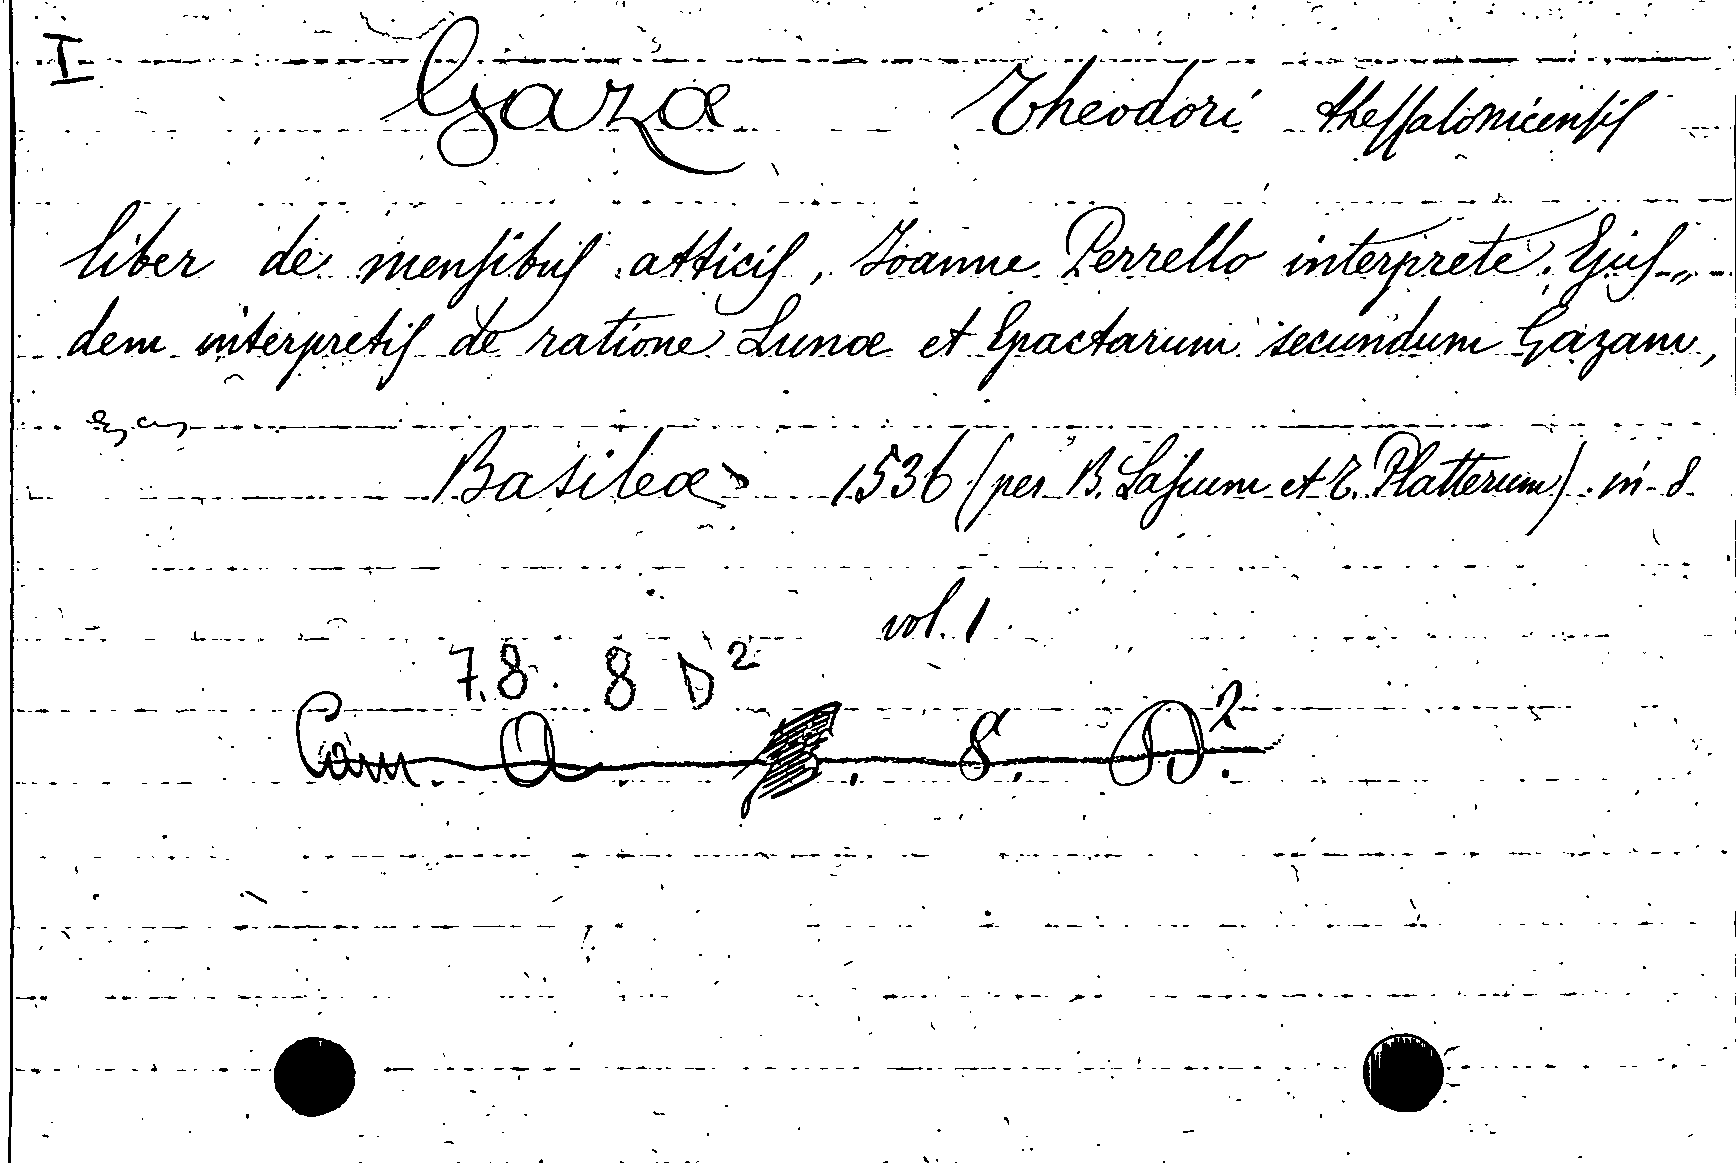 I
Gazæ Theodori thessalonicensis
liber de mensibus atticis, Ioanne Perrello interprete. Ejus-
dem interpretis de ratione Lunæ et Epactarum secundum Gazam,
Basileæ 1536 (per B. Lasium et T. Platterum). in-8
vol. 1
7.8. 8 D²
Cam. Q . 8. D².